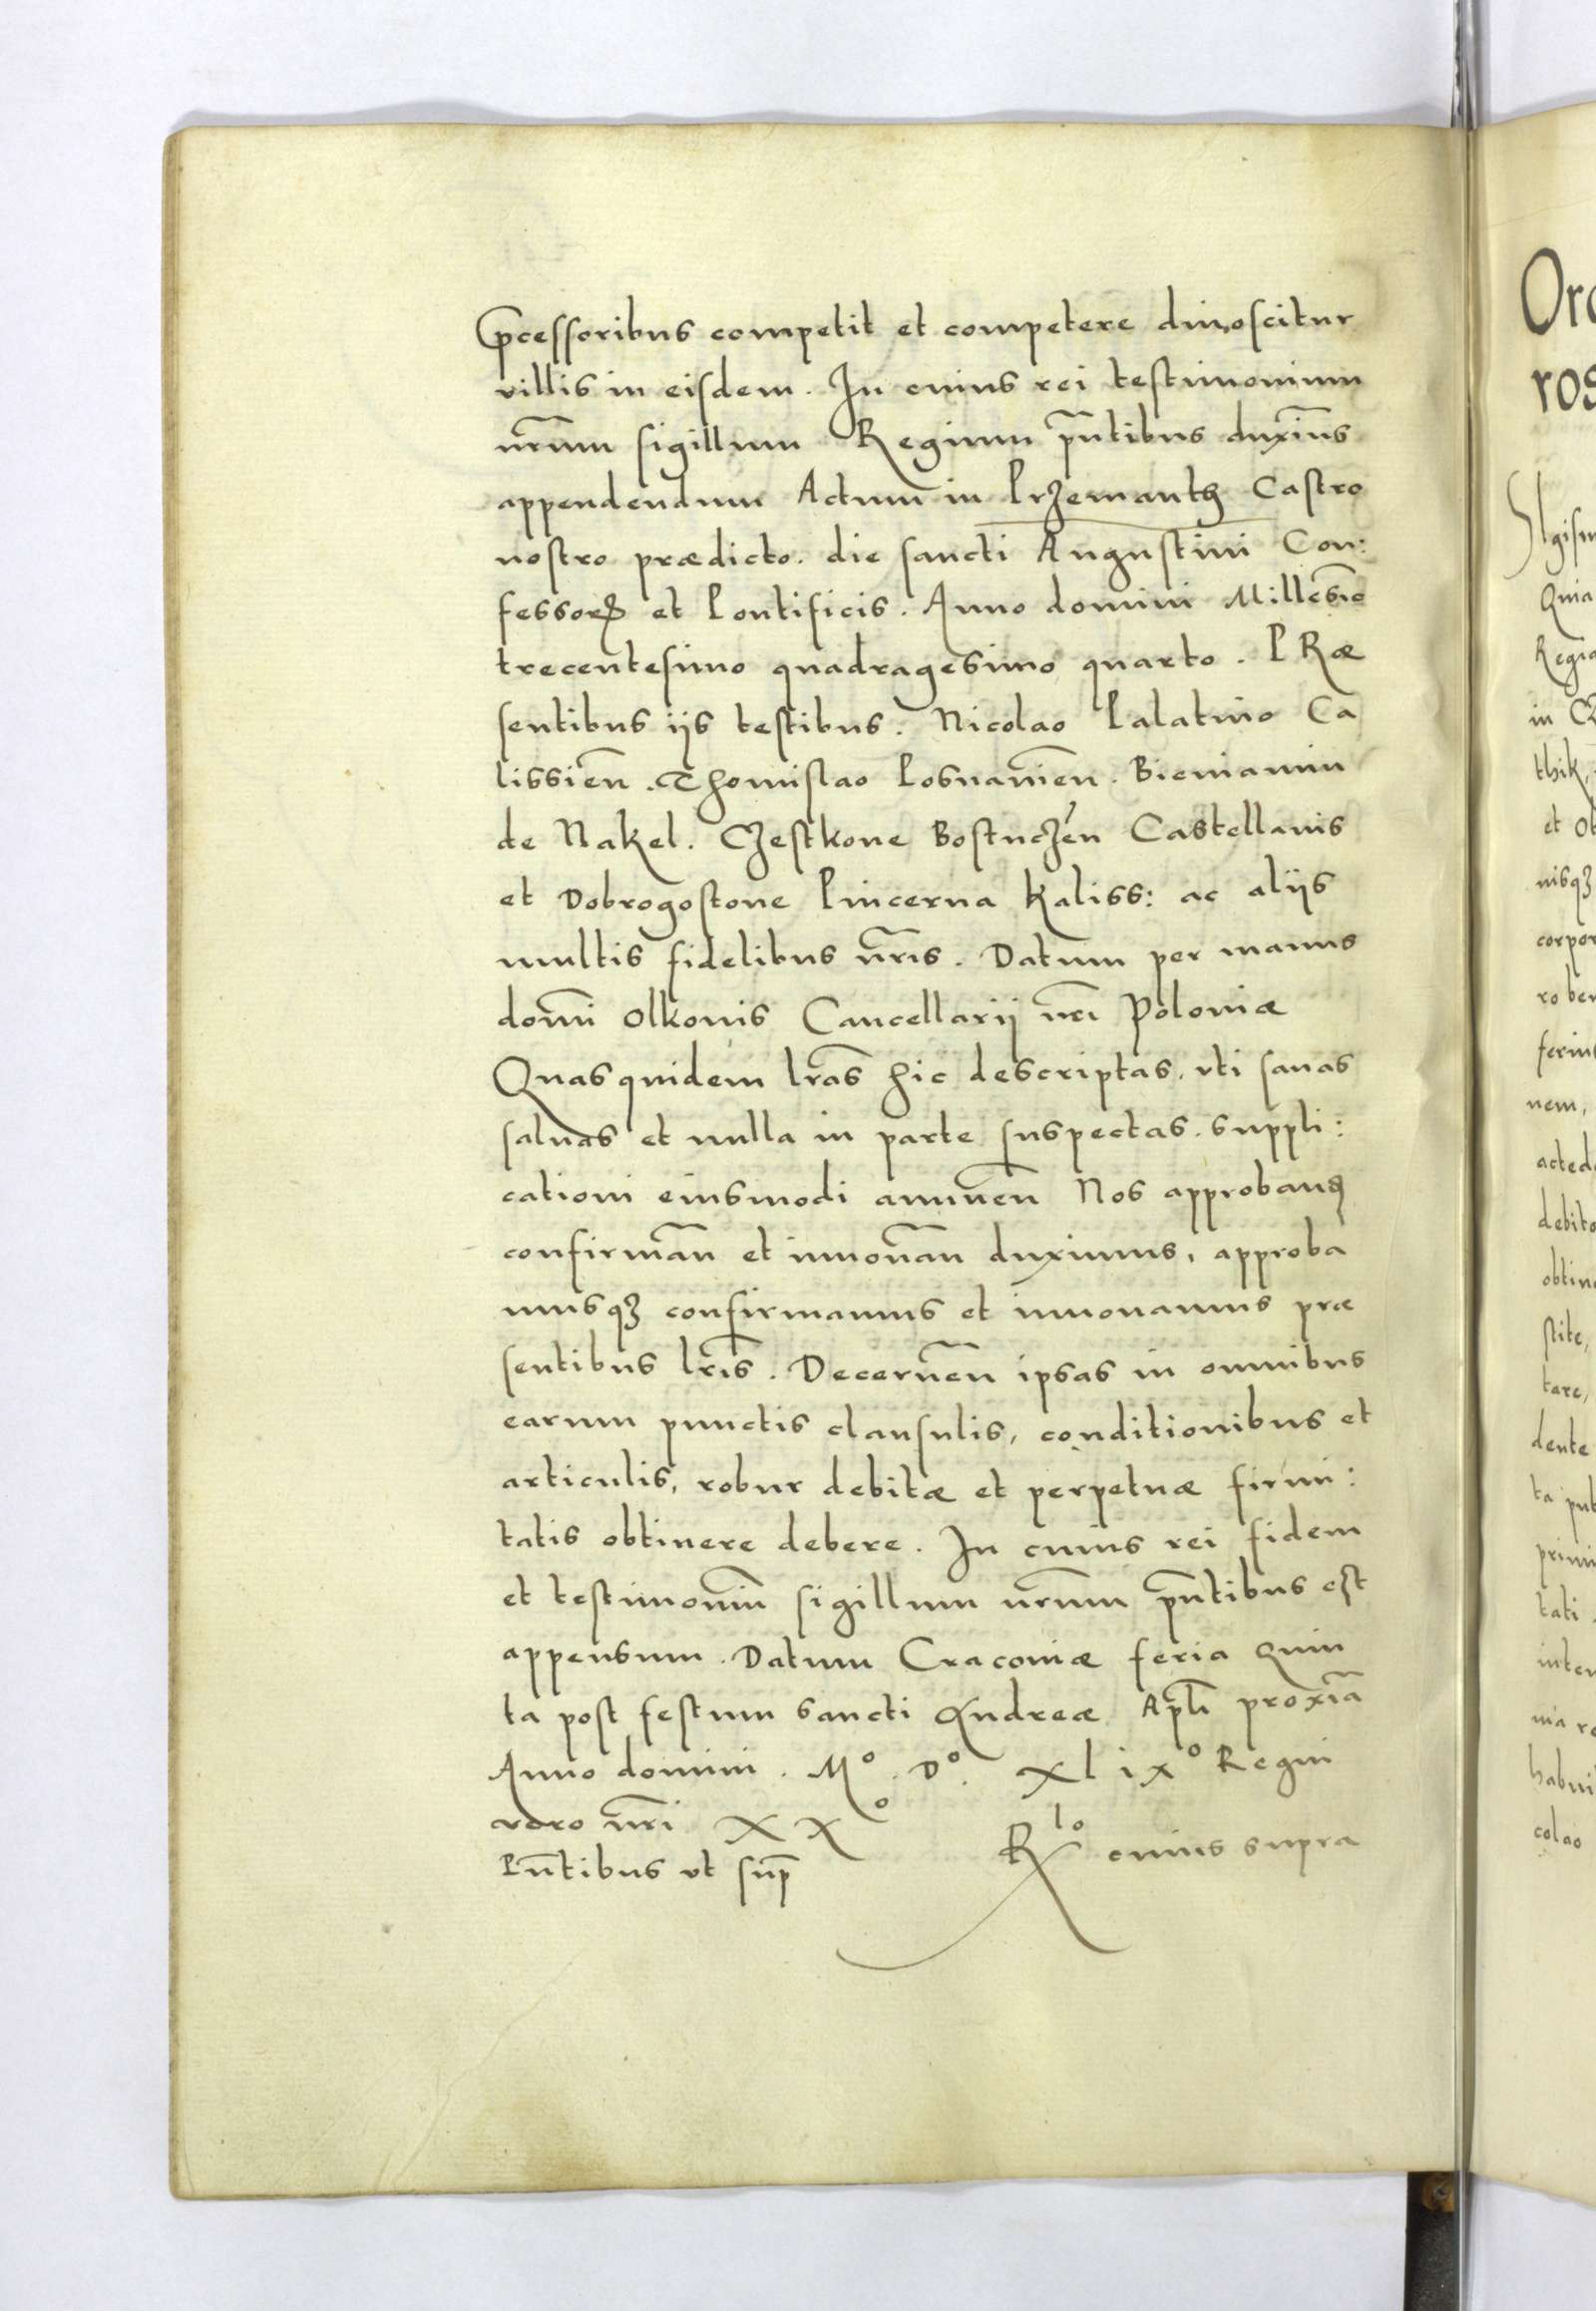 Pcessoribus competit et competere dinoscitur
villis in eisdem. In cuius rei testimonium
nr̃um sigillum Regium p̃ntibus duxim̃us
appendendum Actum in Przemanth Castro
nostro prædicto. die sancti Augustini Con:
fessorꝭ et Pontificis. Anno domini Millesĩo
trecentesimo quadragesimo quarto. PRæ
sentibus ijs testibus. Nicolao Palatino Ca
lissieñ. Thomislao Posnanieñ. Bieniamin
de Nakel. Czestkone Bostuczeñ Castellanis
et Dobrogostone Pincerna Kaliss: ac alijs
multis fidelibus nr̃is. Datum per manus
domĩ Olkonis Cancellarij nr̃i Poloniæ
Quas quidem lr̃as hic descriptas. vti sanas
saluas et nulla in parte suspectas. suppli:
cationi eiusmodi annueñ Nos approbanꝰ
confirmañ et innouañ duximus, approba
musqꝫ confirmamus et innouamus præ
sentibus lr̃is. Decerneñ ipsas in omnibus
earum punctis clausulis, conditionibus et
articulis, robur debitæ et perpetuæ firmi:
tatis obtinere debere. In cuius rei fidem
et testimoniũ sigillum nr̃um p̃ntibus est
appensum. Datum Cracouiæ feria Quin
ta post festum sancti Andreæ Apl̃i proxĩa
Anno domini. Mº. Dº. xlixº Regni
vero nr̃i xxº
Pñtibus vt sup̃ Rlº cuius supra
Ord
ros
Quia
Regia
in
thik,
et
nisqꝫ
corpor
ro ben
ferius
nem,
acted
debito
obtin
stite,
tare,
dente
ta pub
primi
tati
inter
nia ro
habui
colao